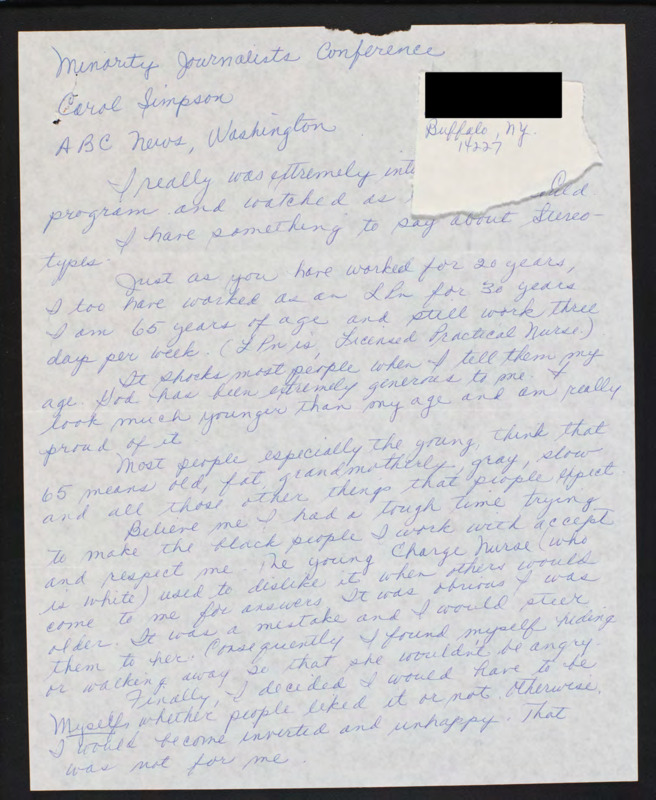 Minority Journalists Conference
Carol Simpson
ABC News, Washington
Buffalo, N.Y.
14227
I really was extremely inte
program and watched as
I have something to say about Stereo-
types.
Just as you have worked for 20 years,
I too have worked as an LPn for 30 years
I am 65 years of age and still work three
days per week. (LPn is, Licensed Practical Nurse)
It shocks most people when I tell them my
age. God has been extremely generous to me. I
look much younger than my age and am really
proud of it
Most people especially the young, think that
65 means old, fat, grandmotherly, gray, slow
and all those other things that people expect
Believe me I had a tough time trying
to make the black people I work with accept
and respect me. The young Charge Nurse (who
is white) used to dislike it when others would
come to me for answers. It was obvious I was
older. It was a mistake and I would steer
them to her. Consequently I found myself hiding
or walking away so that she wouldn't be angry
Finally, I decided I would have to be
Myself, whether people liked it or not. Otherwise,
I would become inverted and unhappy. That
was not for me.